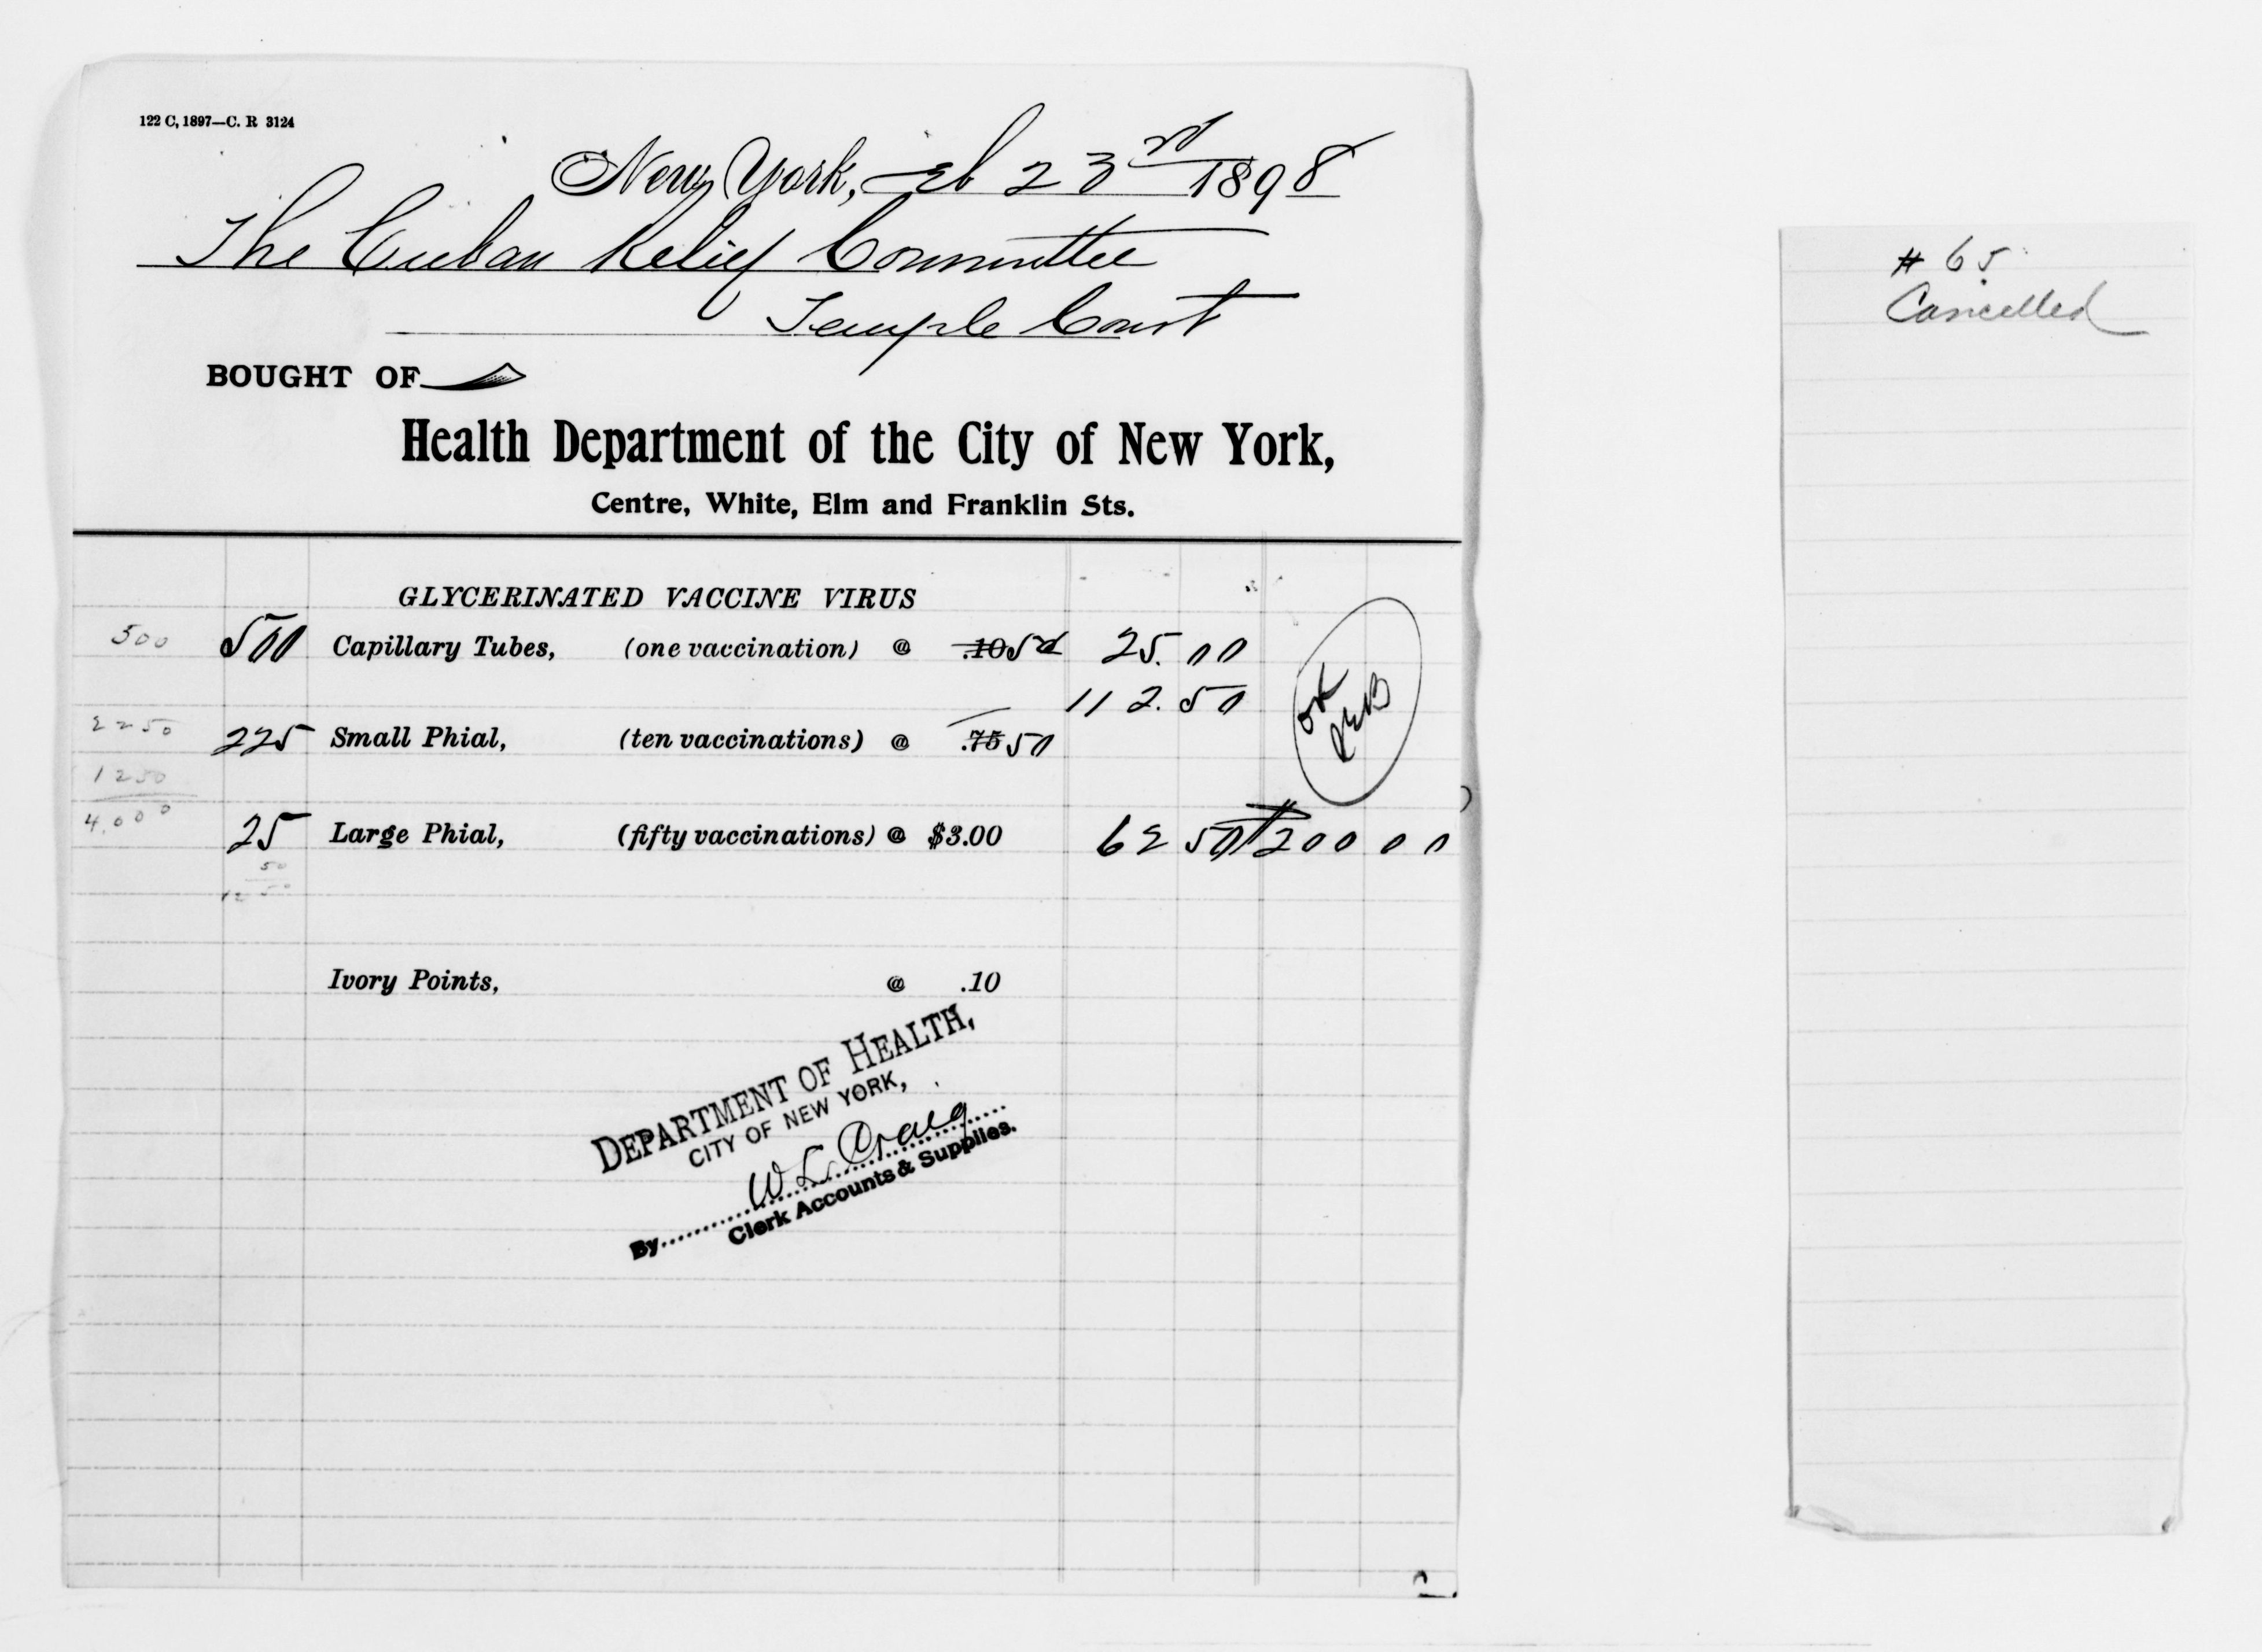 122 C, 1897—C. R 3124
New York, Feb 23rd 1898
The Cuban Relief Committee
Temple Court
BOUGHT OF
Health Department of the City of New York,
Centre, White, Elm and Franklin Sts.
GLYCERINATED VACCINE VIRUS
500 500 Capillary Tubes, (one vaccination) @ .10 5¢ 25.00
112.50
2250 225 Small Phial, (ten vaccinations) @ .75 50
OK
1250
4,000 25 Large Phial, (fifty vaccinations) @ $3.00 62 50 $200 00
50
1250
Ivory Points, @ .10
DEPARTMENT OF HEALTH,
CITY OF NEW YORK,
By W L. Craig
Clerk Accounts & Supplies.
# 65
Cancelled